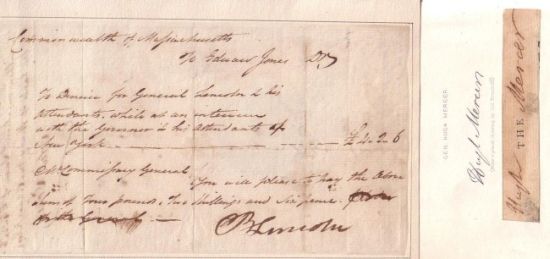 Commonwealth of Massachusetts
To Edward Jones Dr
To Dinner for General Lincoln & his
Attendants, while at an interview
with the Governor & his Attendants of
New York £4.2.6
Mr Commissary General
You will please to pay the above
sum of four pounds, two shillings and six pence
B Lincoln
GEN. HUGH MERCER
Hugh Mercer
Hugh Mercer
THE